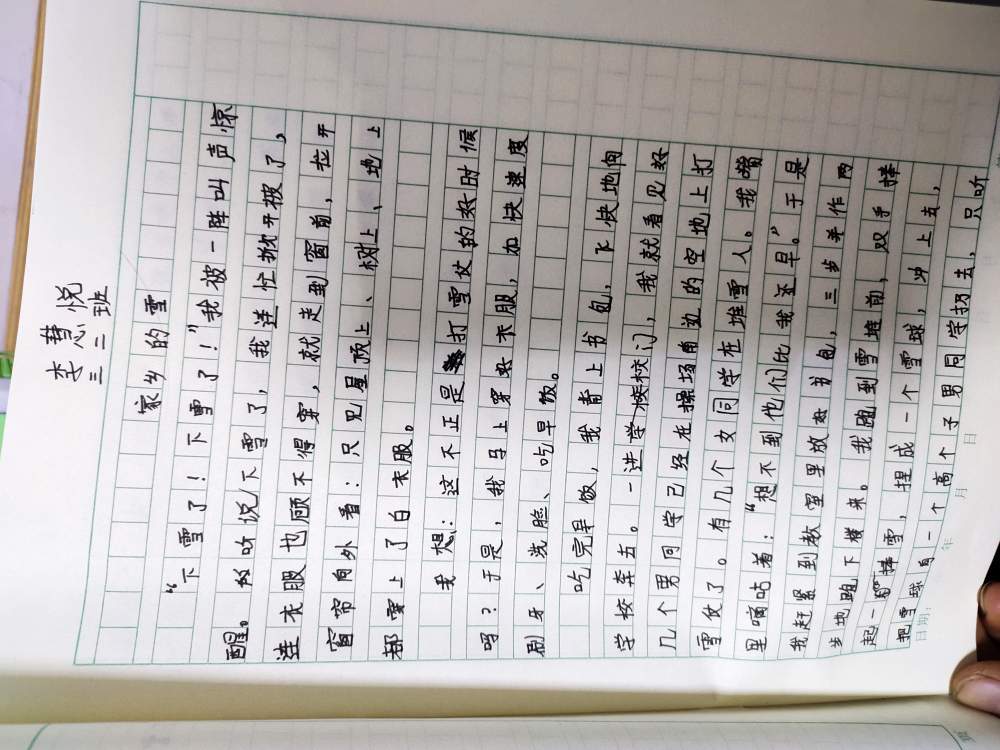 李慧悦
三二班
家乡的雪
“下雪了！下雪了！”我被一阵叫声惊
醒。听说下雪了，我连忙掀开被了，
连衣服也顾不得穿，就走到窗前，拉开
窗帘向外看：只见屋顶上、树上、地上
都穿上了白衣服。
我想：这不正是打雪仗的好时候
吗？于是，我马上穿衣服，加快速度
刷牙、洗脸、吃早饭。
吃完早饭，我背上书包，飞快地向
学校奔去。一进学校校门，我就看见好
几个男同学已经在操场南边的空地上打
雪仗了。有几个女同学在堆雪人。我嘴
里嘀咕着：“想不到他们比我还早。”于是
我赶紧到教室里放好书包，三步并作两
步地跑下楼来。我跑到雪堆前，双手捧
起一捧雪，捏成一个雪球，冲上去，
把雪球向一个高个子男同学扔去，只听
日期： 年 月 日